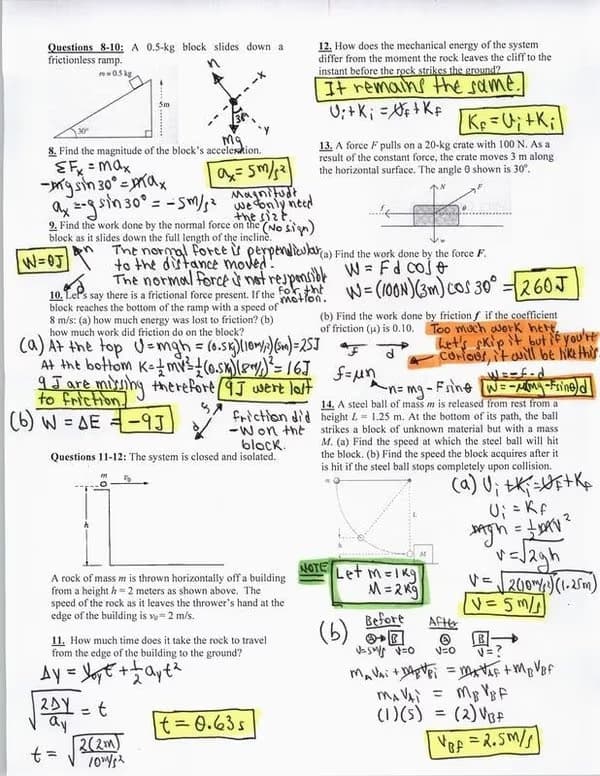 Questions 8-10: A 0.5-kg block slides down a
frictionless ramp.
m = 0.5 kg
5m
30°
n
x
y
30
mg
8. Find the magnitude of the block's acceleration.
ΣFx = max
-mg sin 30° = max
ax = -g sin 30° = -5m/s²
ax = 5m/s²
Magnitude
we only need
the size.
(No sign)
9. Find the work done by the normal force on the
block as it slides down the full length of the incline.
W=0J
n
The normal force is perpendicular
to the distance moved.
The normal force is not responsible
for the
motion.
10. Let's say there is a frictional force present. If the
block reaches the bottom of the ramp with a speed of
8 m/s: (a) how much energy was lost to friction? (b)
how much work did friction do on the block?
(a) At the top U=mgh = (0.5kg)(10m/s²)(5m)=25J
At the bottom K=½mv²=½(0.5kg)(8m/s)²=16J
9J are missing therefore 9J were lost
to friction.
(b) W = ΔE = -9J
f
d
friction did
-W on the
block.
Questions 11-12: The system is closed and isolated.
m
v₀
h
A rock of mass m is thrown horizontally off a building
from a height h = 2 meters as shown above. The
speed of the rock as it leaves the thrower's hand at the
edge of the building is v₀ = 2 m/s.
11. How much time does it take the rock to travel
from the edge of the building to the ground?
Δy = v₀yt + ½ayt²
√2Δy/ay = t
t = √2(2m)/10m/s²
t = 0.63s
12. How does the mechanical energy of the system
differ from the moment the rock leaves the cliff to the
instant before the rock strikes the ground?
It remains the same.
Ui + Ki = Uf + Kf
Kf = Ui + Ki
13. A force F pulls on a 20-kg crate with 100 N. As a
result of the constant force, the crate moves 3 m along
the horizontal surface. The angle θ shown is 30°.
N
F
f
θ
w
(a) Find the work done by the force F.
W = Fd cosθ
W = (100N)(3m) cos 30° = 260J
(b) Find the work done by friction f if the coefficient
of friction (μ) is 0.10.
Too much work here,
Let's skip it but if you're
curious, it will be like this
f
d
f=μn
n=mg-Fsinθ
W=-f·d
W=-μ(mg-Fsinθ)d
14. A steel ball of mass m is released from rest from a
height L = 1.25 m. At the bottom of its path, the ball
strikes a block of unknown material but with a mass
M. (a) Find the speed at which the steel ball will hit
the block. (b) Find the speed the block acquires after it
is hit if the steel ball stops completely upon collision.
m
L
h
M
(a) Ui + Ki = Uf + Kf
Ui = Kf
mgh = ½mv²
v = √2gh
v = √2(10m/s²)(1.25m)
v = 5m/s
NOTE
Let m = 1kg
M = 2kg
(b)
Before
After
A
B
A
B
v=5m/s
v=0
v=0
v=?
mAvAi + mBvBi = mAvAF + mBvBF
mAvAi = mBvBF
(1)(5) = (2)vBF
vBF = 2.5m/s